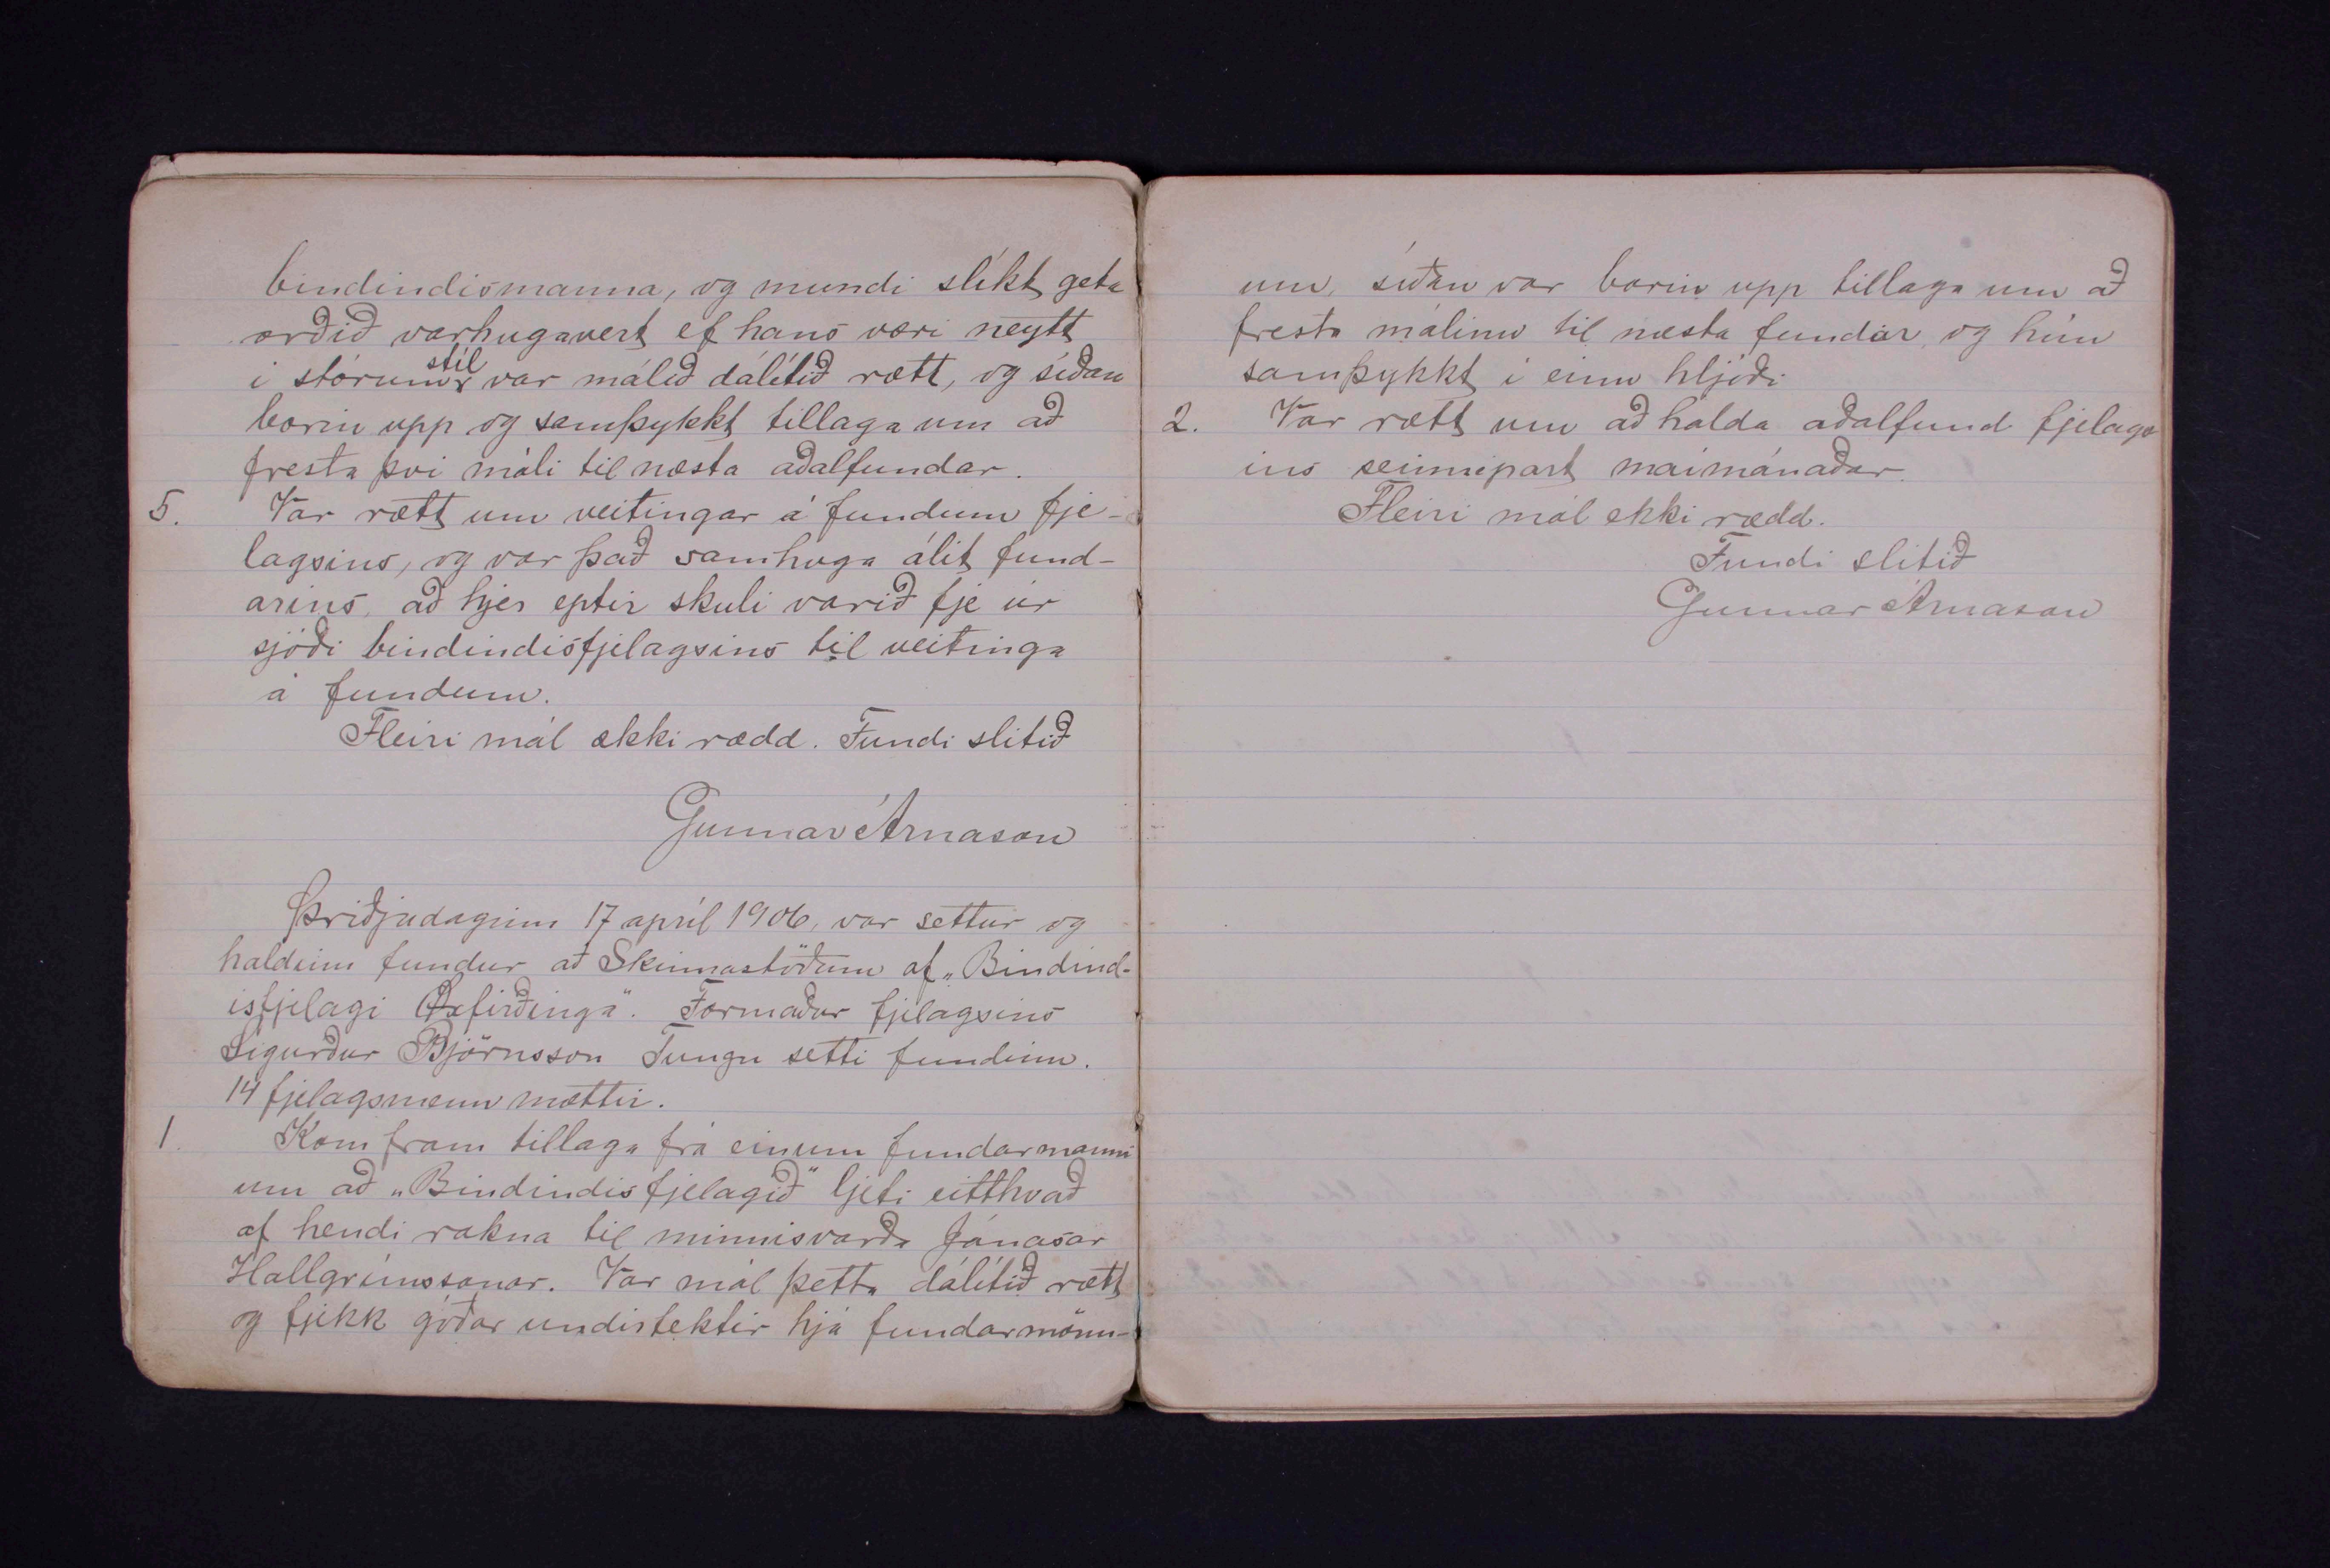 bindindismanna, og mundi slíkt geta
orðið varhugavert ef hans væri neytt
i stórum stíl var málið dálítið rætt, og síðan
borin upp og samþykkt tillaga um að
fresta þvi máli til næsta aðalfundar.
5. Var rætt um veitingar á fundum fje-
lagsins, og var það samhuga álit fund-
arins, að hjer eptir skuli varið fje úr
sjóði bindindisfjelagsins til veitinga
á fundum.
Fleiri mál ekki rædd. Fundi slitið
Gunnar Árnason
Þriðjudaginn 17 apríl 1906, var settur og
haldinn fundur að Skinnastöðum af „Bindind-
isfjelagi Öxfirðinga". Formaður fjelagsins
Sigurður Björnsson Tungu setti fundinn.
14 fjelagsmenn mættir.
1. Kom fram tillaga frá einum fundarmanni
um að „Bindindisfjelagið" ljeti eitthvað
af hendi rakna til minnisvarða Jónasar
Hallgrímssonar. Var mál þetta dálítið rætt
og fjekk góðar undirtektir hjá fundarmönn-
um, síðan var borin upp tillaga um að
fresta málinu til næsta fundar, og hún
samþykkt i einu hljóði
2. Var rætt um að halda aðalfund fjelags
ins seinnipart maímánaðar.
Fleiri mál ekki rædd.
Fundi slitið
Gunnar Árnason